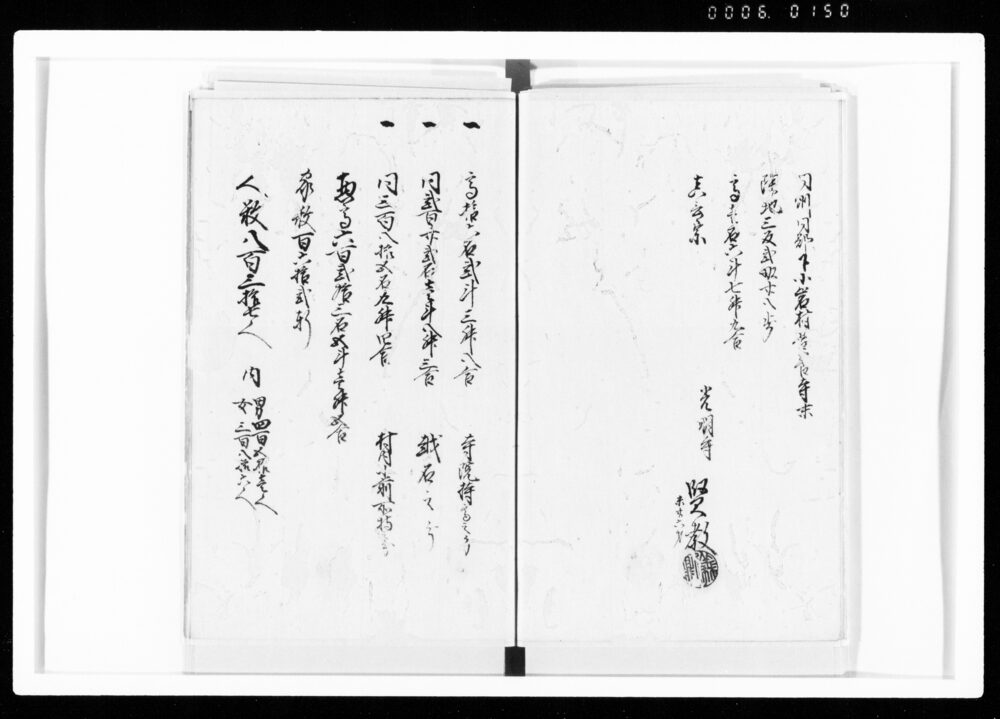 0006 0150
同州同郡下小岩村善養寺末
除地三反弐畝廿八歩
高壱石六斗七升九合
真言宗
光明寺
賢教
未廿六才
一 高拾六石弐斗三升八合 寺院持高之分
一 同弐百廿弐石七斗八升三合 越石之分
一 同三百八拾五石九升四合 村内小前所持高
惣高六百弐拾三石五斗壱升五合
家数百六拾弐軒
人数八百三拾七人 内
男四百五拾壱人
女三百八拾六人